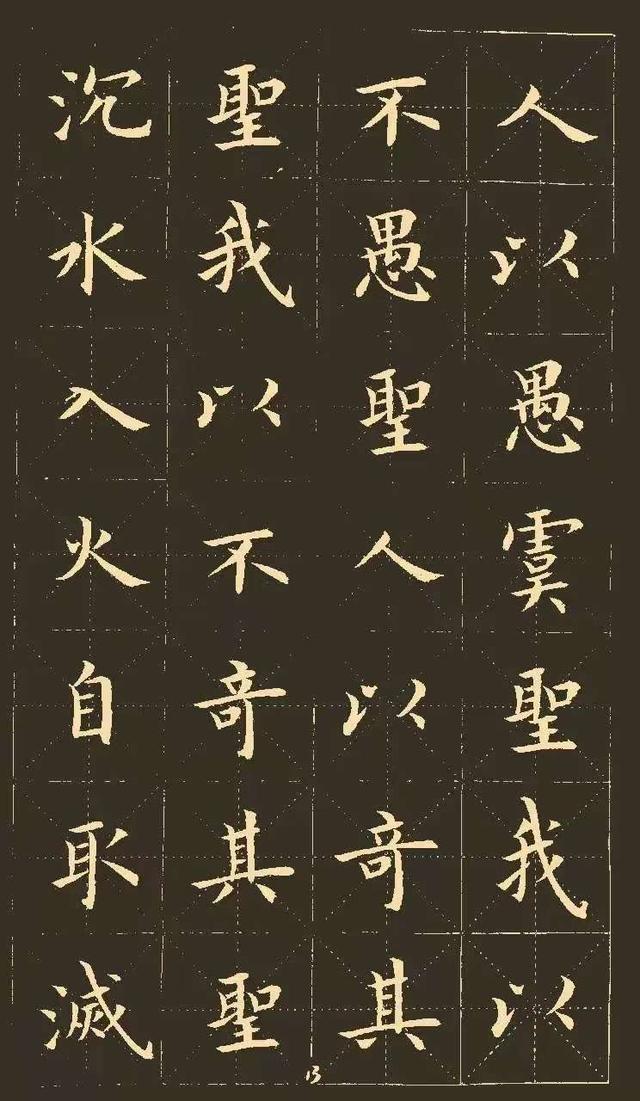 人以愚虞聖我以
不愚聖人以奇其
聖我以不奇其聖
沉水入火自取滅
13